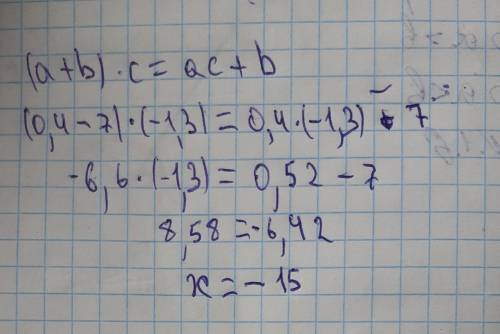 (a+b)·c=ac+b
(0,4-7)·(-1,3)=0,4·(-1,3)-7
-6,6·(-1,3)=0,52-7
8,58=-6,42
x=-15